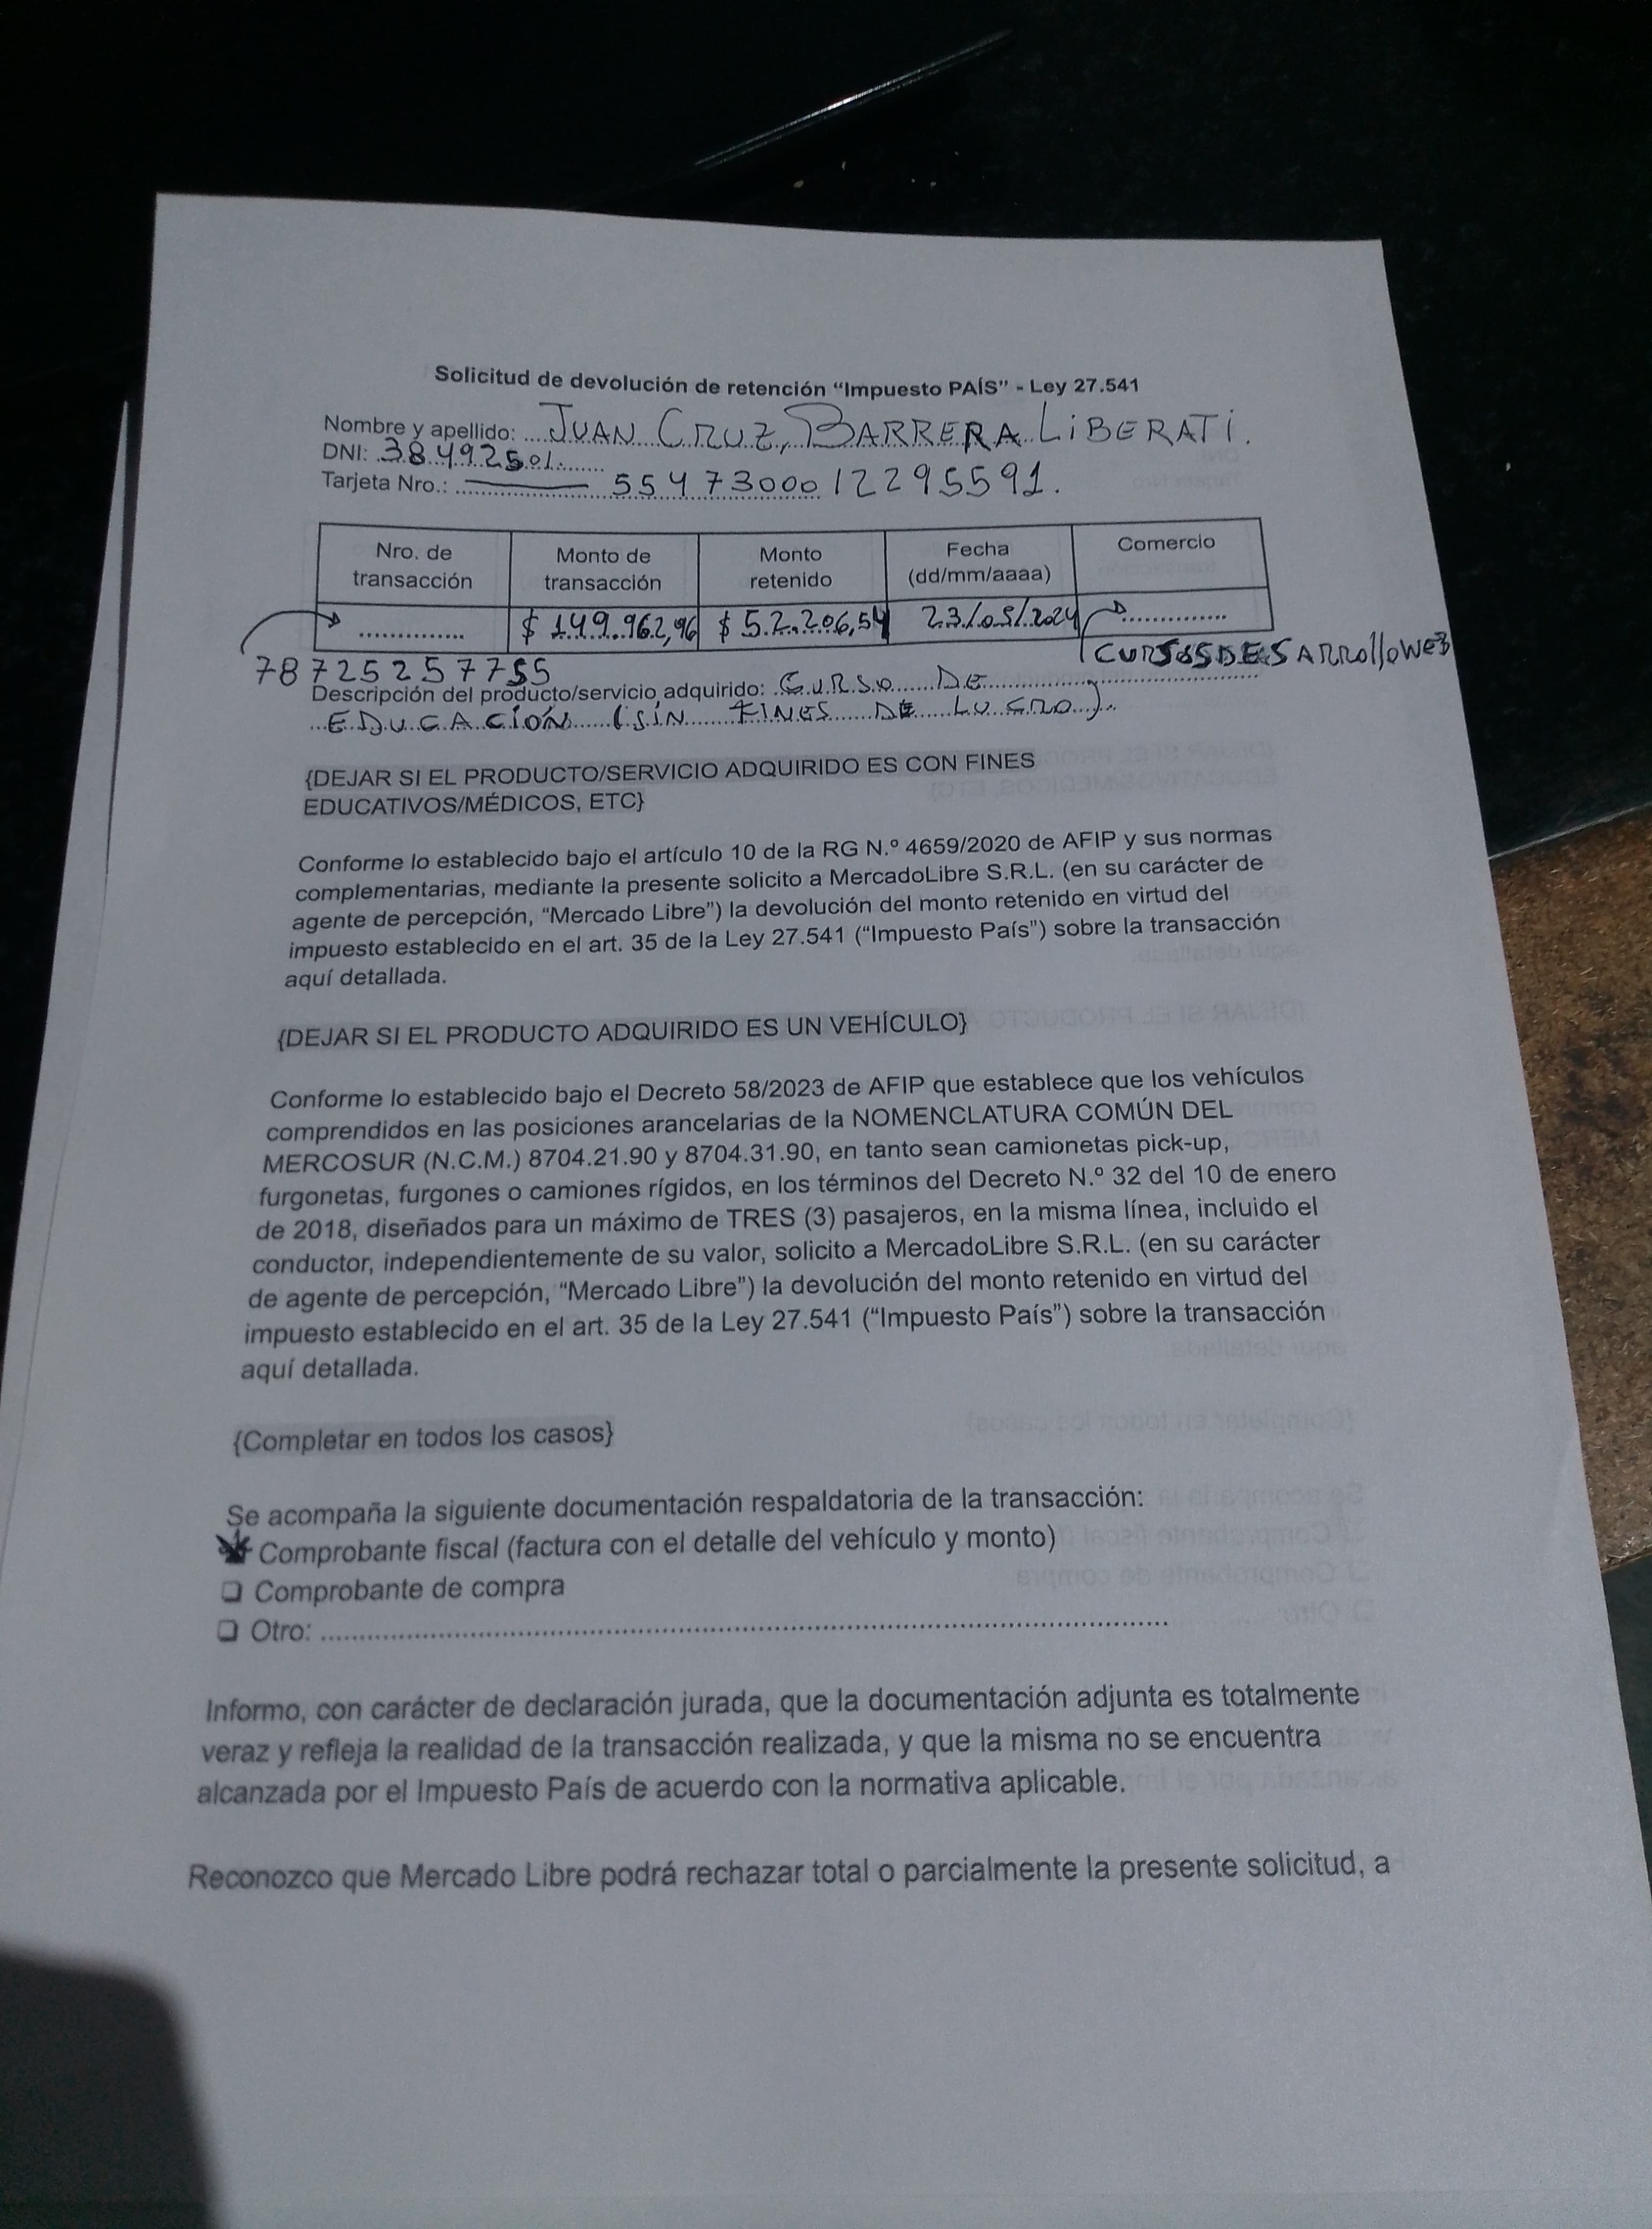 Solicitud de devolución de retención “Impuesto PAÍS” - Ley 27.541
Nombre y apellido: ....JUAN CRUZ, BARRERA LiBERATi.
DNI: 38492501.........
Tarjeta Nro.: .................... 5547300012295591.
Nro. de transacción
Monto de transacción
Monto retenido
Fecha (dd/mm/aaaa)
Comercio
.............. $ 149.962,96 $ 52.206,54 23/05/2024 ..............
CURSOSDESARRolloWEB
787252577 55
Descripción del producto/servicio adquirido: CURSO DE
EDUCACIÓN (SiN FINES DE LUCRO).
{DEJAR SI EL PRODUCTO/SERVICIO ADQUIRIDO ES CON FINES
EDUCATIVOS/MÉDICOS, ETC}
Conforme lo establecido bajo el artículo 10 de la RG N.º 4659/2020 de AFIP y sus normas
complementarias, mediante la presente solicito a MercadoLibre S.R.L. (en su carácter de
agente de percepción, “Mercado Libre”) la devolución del monto retenido en virtud del
impuesto establecido en el art. 35 de la Ley 27.541 (“Impuesto País”) sobre la transacción
aquí detallada.
{DEJAR SI EL PRODUCTO ADQUIRIDO ES UN VEHÍCULO}
Conforme lo establecido bajo el Decreto 58/2023 de AFIP que establece que los vehículos
comprendidos en las posiciones arancelarias de la NOMENCLATURA COMÚN DEL
MERCOSUR (N.C.M.) 8704.21.90 y 8704.31.90, en tanto sean camionetas pick-up,
furgonetas, furgones o camiones rígidos, en los términos del Decreto N.º 32 del 10 de enero
de 2018, diseñados para un máximo de TRES (3) pasajeros, en la misma línea, incluido el
conductor, independientemente de su valor, solicito a MercadoLibre S.R.L. (en su carácter
de agente de percepción, “Mercado Libre”) la devolución del monto retenido en virtud del
impuesto establecido en el art. 35 de la Ley 27.541 (“Impuesto País”) sobre la transacción
aquí detallada.
{Completar en todos los casos}
Se acompaña la siguiente documentación respaldatoria de la transacción:
Comprobante fiscal (factura con el detalle del vehículo y monto)
❏ Comprobante de compra
❏ Otro: ..........................................................................................
Informo, con carácter de declaración jurada, que la documentación adjunta es totalmente
veraz y refleja la realidad de la transacción realizada, y que la misma no se encuentra
alcanzada por el Impuesto País de acuerdo con la normativa aplicable.
Reconozco que Mercado Libre podrá rechazar total o parcialmente la presente solicitud, a